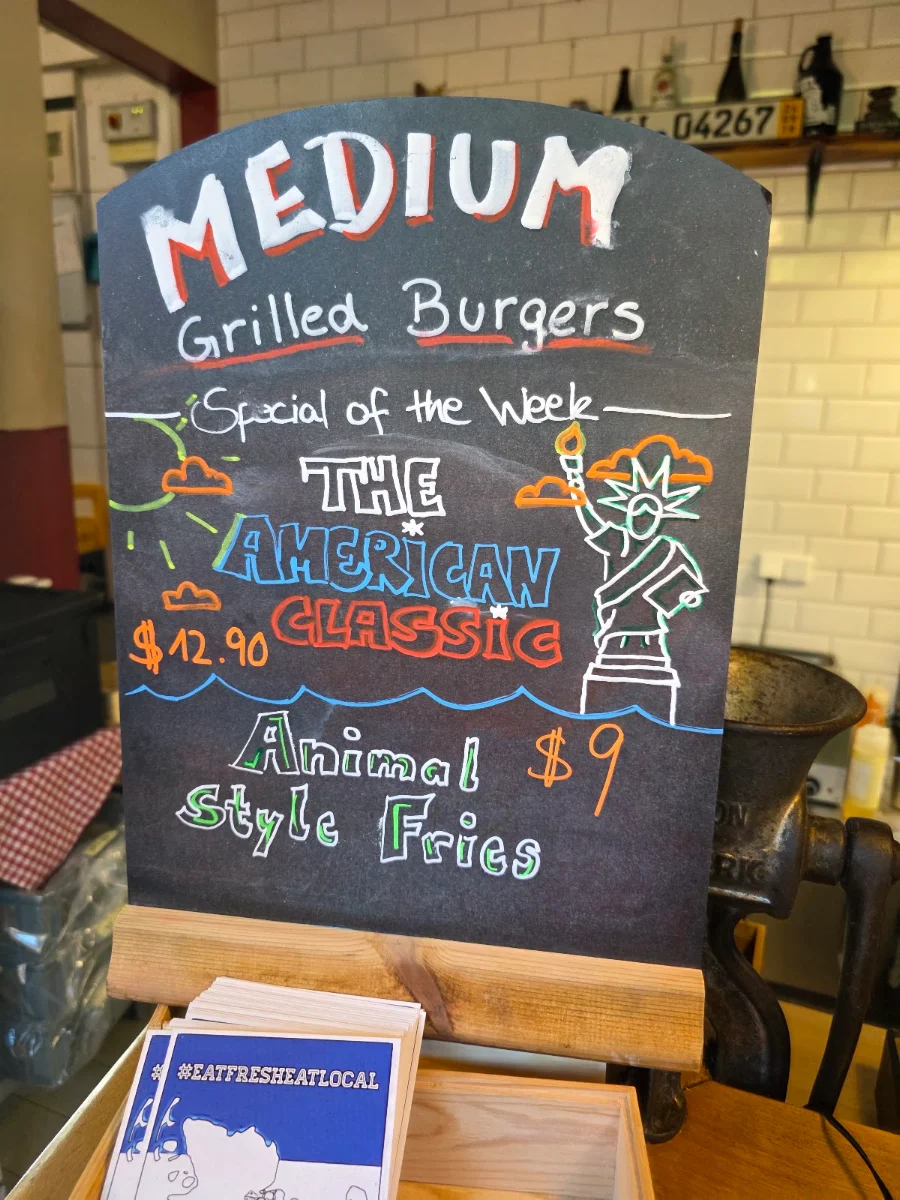 04267
MEDIUM
Grilled Burgers
Special of the Week
THE
AMERICAN
CLASSIC
$12.90
Animal
Style Fries
$9
#EATFRESHEATLOCAL